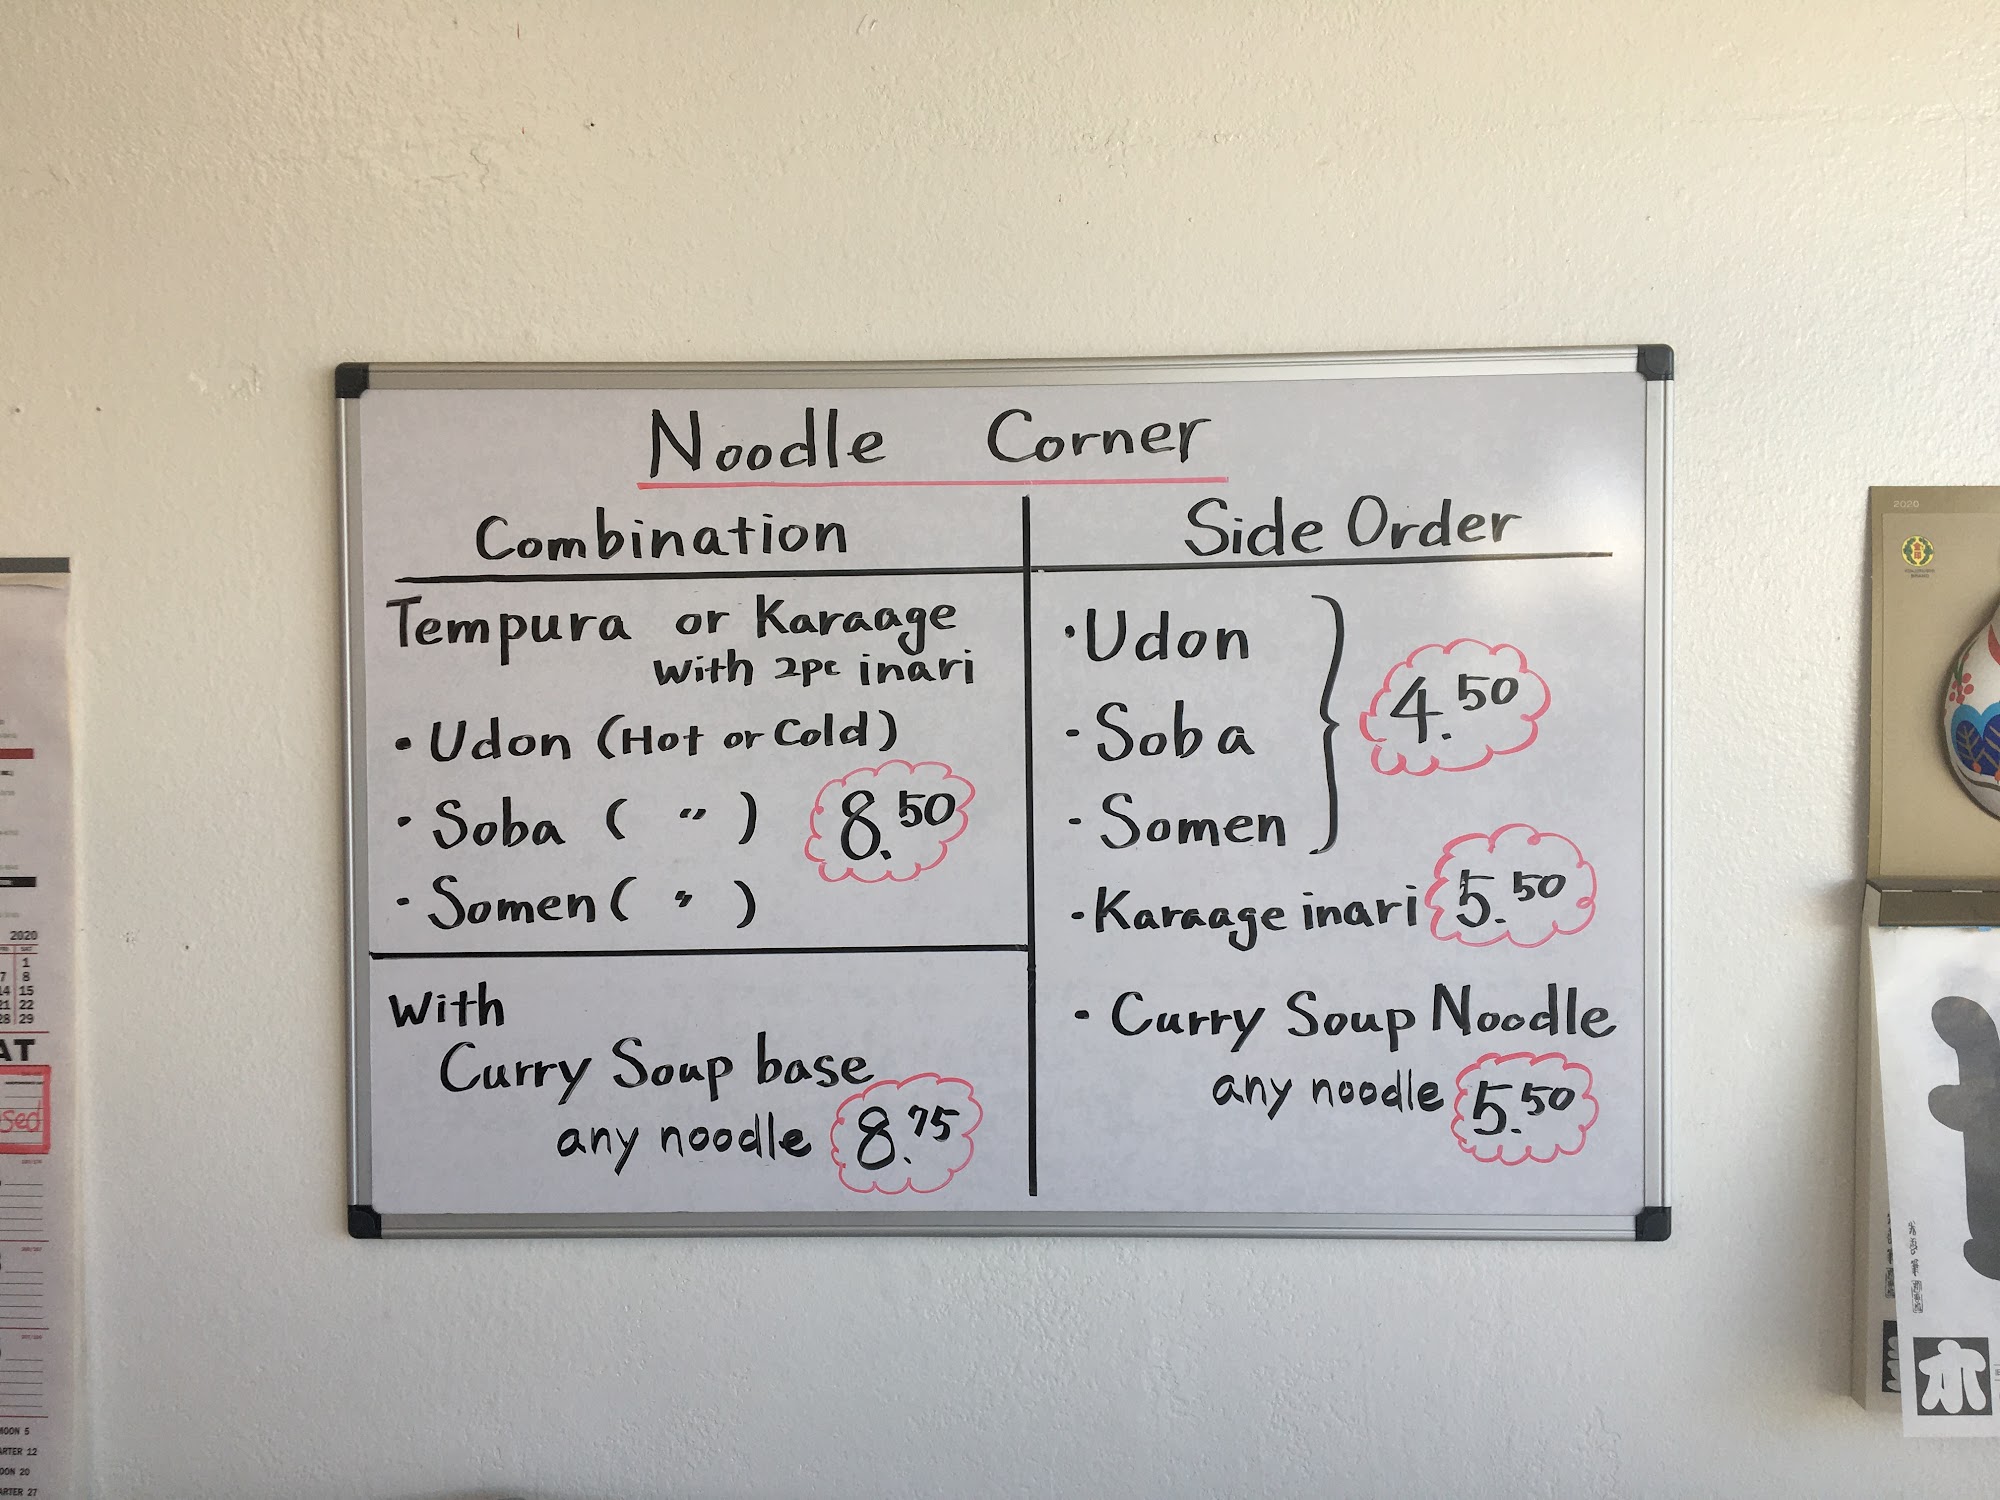 Noodle Corner
Combination
Tempura or Karaage
with 2pc inari
• Udon (Hot or Cold)
• Soba ( 〃 ) 8.50
• Somen ( 〃 )
With
Curry Soup base
any noodle 8.75
Side Order
• Udon
• Soba
• Somen
4.50
• Karaage inari 5.50
• Curry Soup Noodle
any noodle 5.50
2020
SAT
1
7 8
14 15
21 22
28 29
AT
sed
MOON 5
ARTER 12
OON 20
ARTER 27
2020